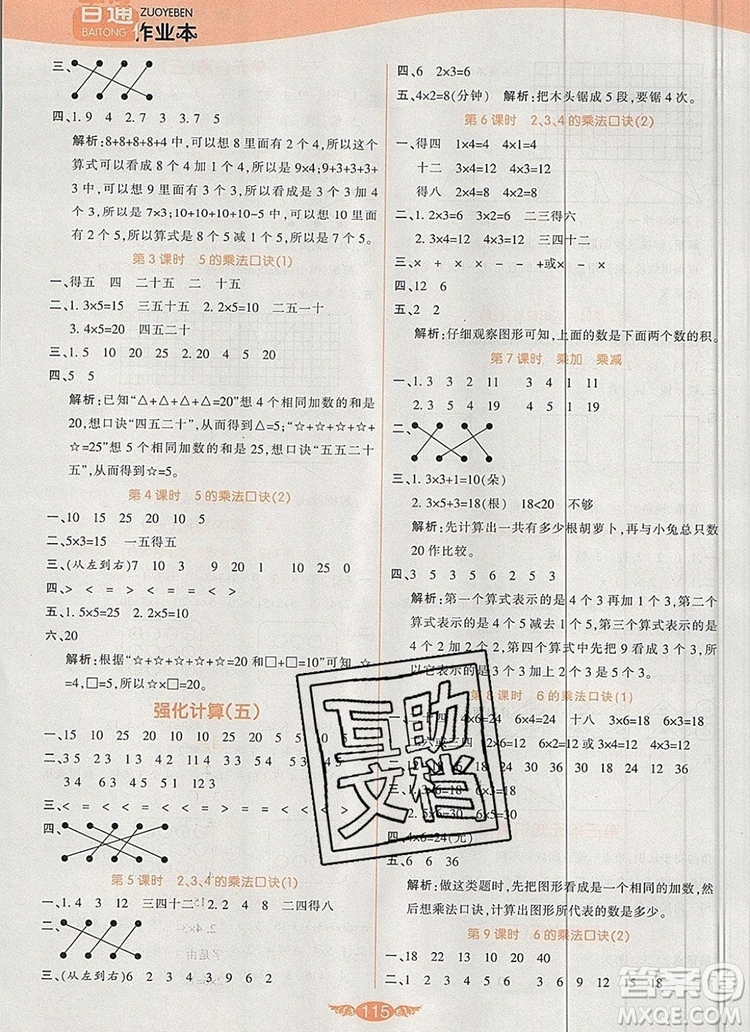 百通
BAITONG
ZUOYEBEN
作业本
三、
四、1. 9 4 2. 7 3 3. 7 5
解析:8+8+8+8+4 中,可以看成 8 里面有 2 个 4,所以这个
算式可以看成 9 个 4 相加,所以是 9×4;9+3+3+3
+3 中,可以想 9 里面有 3 个 3,所以可以看成 7 个 3
相加,所以是 7×3;10+10+10+10-10 中,可以想 10 里
面有 2 个 5,所以算式是 8 个 5 减 1 个 5,所以是 7×5。
第 3 课时 5 的乘法口诀(1)
一、得五 四 二十五 二 十五
二、1. 3×5=15 三五十五 2. 2×5=10 二五一十
3. 4×5=20 四五二十
三、
四、5 5
解析:已知“△+△+△+△=20”想 4 个相同加数的和是
20,想口诀“四五二十”,从而得到△=5;“☆+☆+☆+☆
+☆=25”想 5 个相同加数的和是 25,想口诀“五五二十
五”,从而得到☆=5。
第 4 课时 5 的乘法口诀(2)
一、10 15 25 10 20 5
二、5×3=15 一五得五
三、(从左到右)7 10 3 9 20 1 10 25 0
四、> < = > < =
五、1. 5×5=25 2. 2×5=10
六、20
解析:根据“☆+☆+☆+☆+☆=20 和□+□=☆”可知,☆
=4,□=2,所以☆×□=20。
强化计算(五)
一、15 10 20 5 20 25 15 10 5 0
二、3 5 4 5 13 5 2 3 5 1 1 4
3 4 3 5 4 5 1 2 3
三、> < = < = < < = < < < =
四、
第 5 课时 2、3、4 的乘法口诀(1)
一、1. 9 4 12 三四十二 2. 2 4 8 二四得八
二、
三、(从左到右)2 3 4 2 3 4 3 9 6 2
四、6 2×3=6
五、4×2=8(分钟) 解析:把木头锯成 5 段,要锯 4 次。
第 6 课时 2、3、4 的乘法口诀(2)
一、得四 1×4=4 4×1=4
十二 3×4=12 4×3=12
得八 2×4=8 4×2=8
二、1. 2×3=6 3×2=6 二三得六
2. 3×4=12 4×3=12 三四十二
三、- × × × - - +或× - ×
四、12 6
五、2 2
解析:仔细观察图形可知,上面的数是下面两个数的积。
第 7 课时 乘加 乘减
一、1. 3 3 2 11 3 4 3 11
2. 3 5 4 19 4 5 1 19
二、
三、1. 3×3+1=10(朵)
2. 3×5+3=18(根) 18<20 不够
解析:先计算出一共有多少根胡萝卜,再与小兔总只数
20 作比较。
四、3 5 3 5 6 2 5 3
解析:第一个算式表示的是 4 个 3 再加 1 个 3,第二个
算式表示的是 4 个 5 减去 1 个 5,第三个算式表示的
是 4 个 2 再加 2 个 2,第四个算式中先想 9 里面有 3 个 3,所
以它表示的是 2 个 3 再加 3 个 3,所以是 5 个 3。
第 8 课时 6 的乘法口诀(1)
4×6=24 6×4=24 十八 3×6=18 6×3=18
四、4×6=24(元)
五、6 6 36
解析:做这类题时,只要看几个一个相同的加数,然
后想乘法口诀,计算出图形所代表的数是多少。
第 9 课时 6 的乘法口诀(2)
一、18 22 13 20 10 40
二、1 2 3 4 5 6 3 6 9 12 15 18
互助
文档
115
答案圈
MXQE.COM